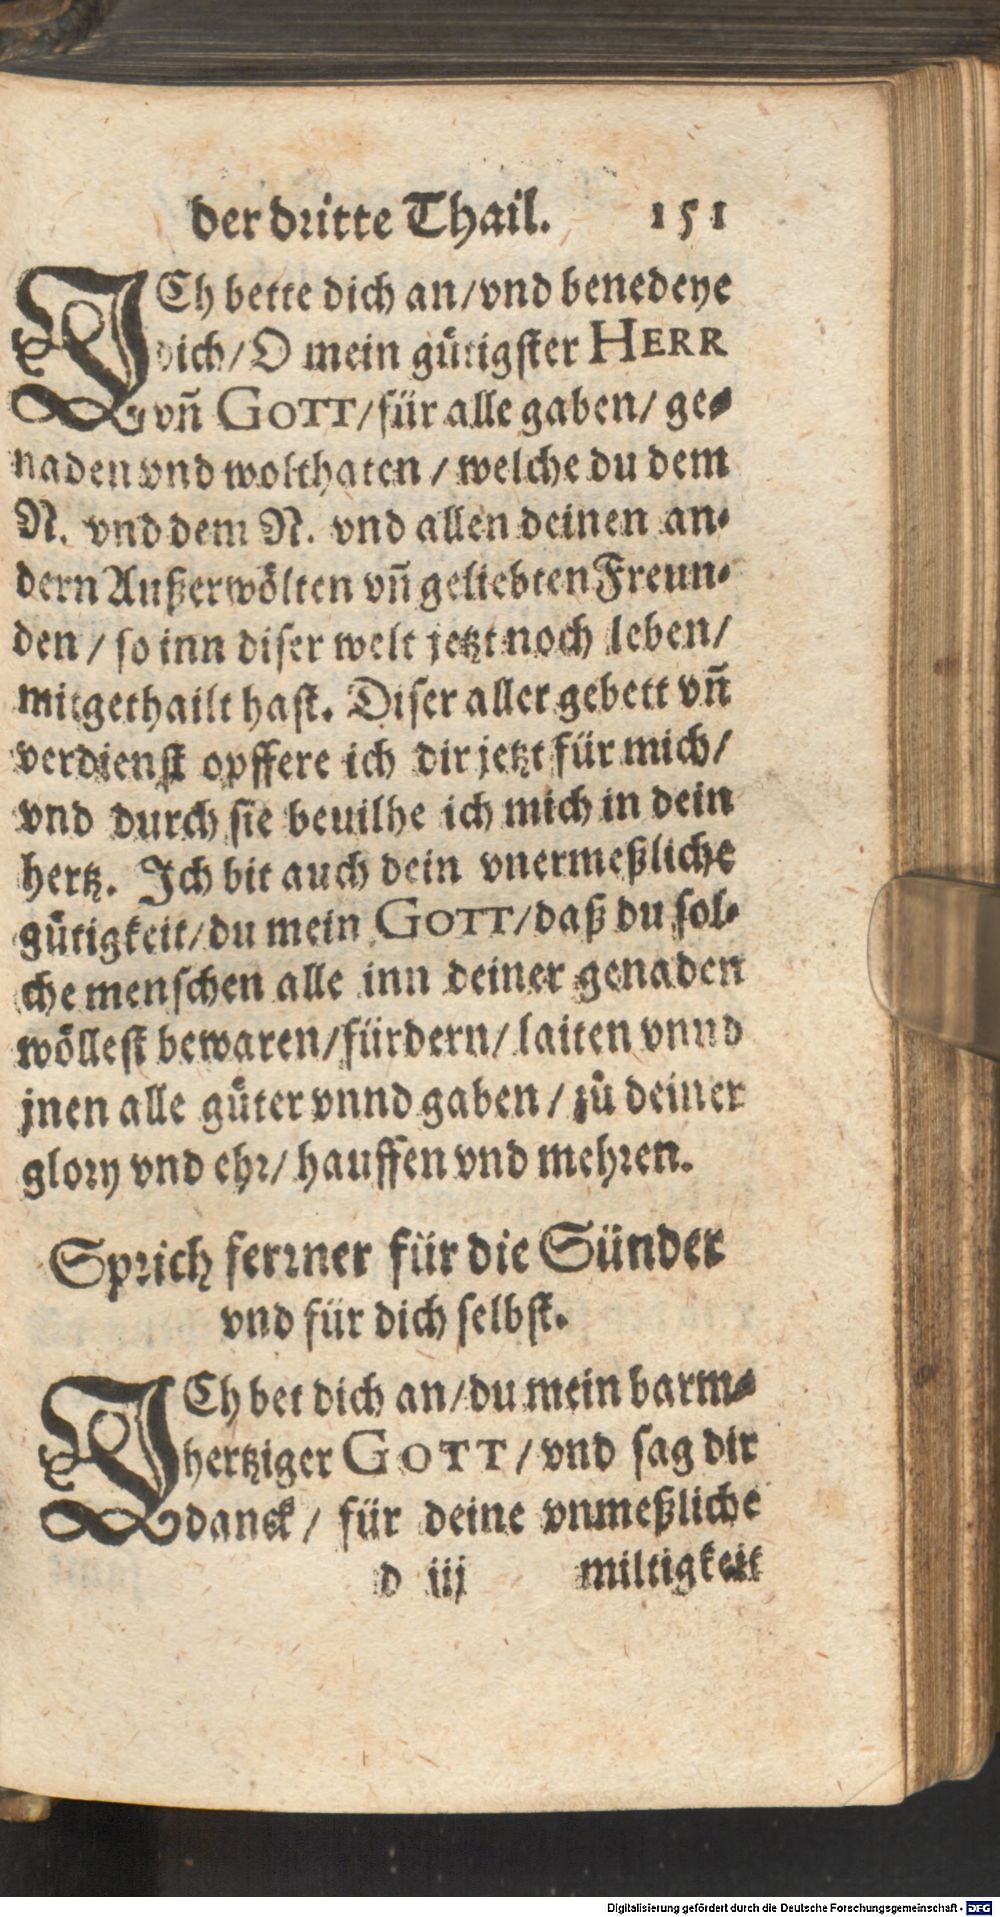 der dritte Thail. 151
ICh bette dich an/vnd benedeye
dich/O mein gütigster HERR
vñ GOTT/für alle gaben/ ge-
naden vnd wolthaten / welche du dem
N. vnd dem N. vnd allen deinen an-
dern Außerwölten vñ geliebten Freun-
den / so inn diser welt jetzt noch leben/
mitgethailt hast. Diser aller gebett vñ
verdienst opffere ich dir jetzt für mich/
vnd durch sie beuilhe ich mich in dein
hertz. Ich bit auch dein vnermeßliche
gütigkeit/du mein GOTT/daß du sol-
che menschen alle inn deiner genaden
wöllest bewaren/fürdern/ laiten vnnd
jnen alle güter vnnd gaben / zů deiner
glory vnd ehr/ hauffen vnd mehren.
Sprich ferrner für die Sünder
vnd für dich selbst.
ICh bet dich an/du mein barm-
hertziger GOTT/vnd sag dir
danck/ für deine vnmeßliche
d iij miltigkeit
Digitalisierung gefördert durch die Deutsche Forschungsgemeinschaft - DFG